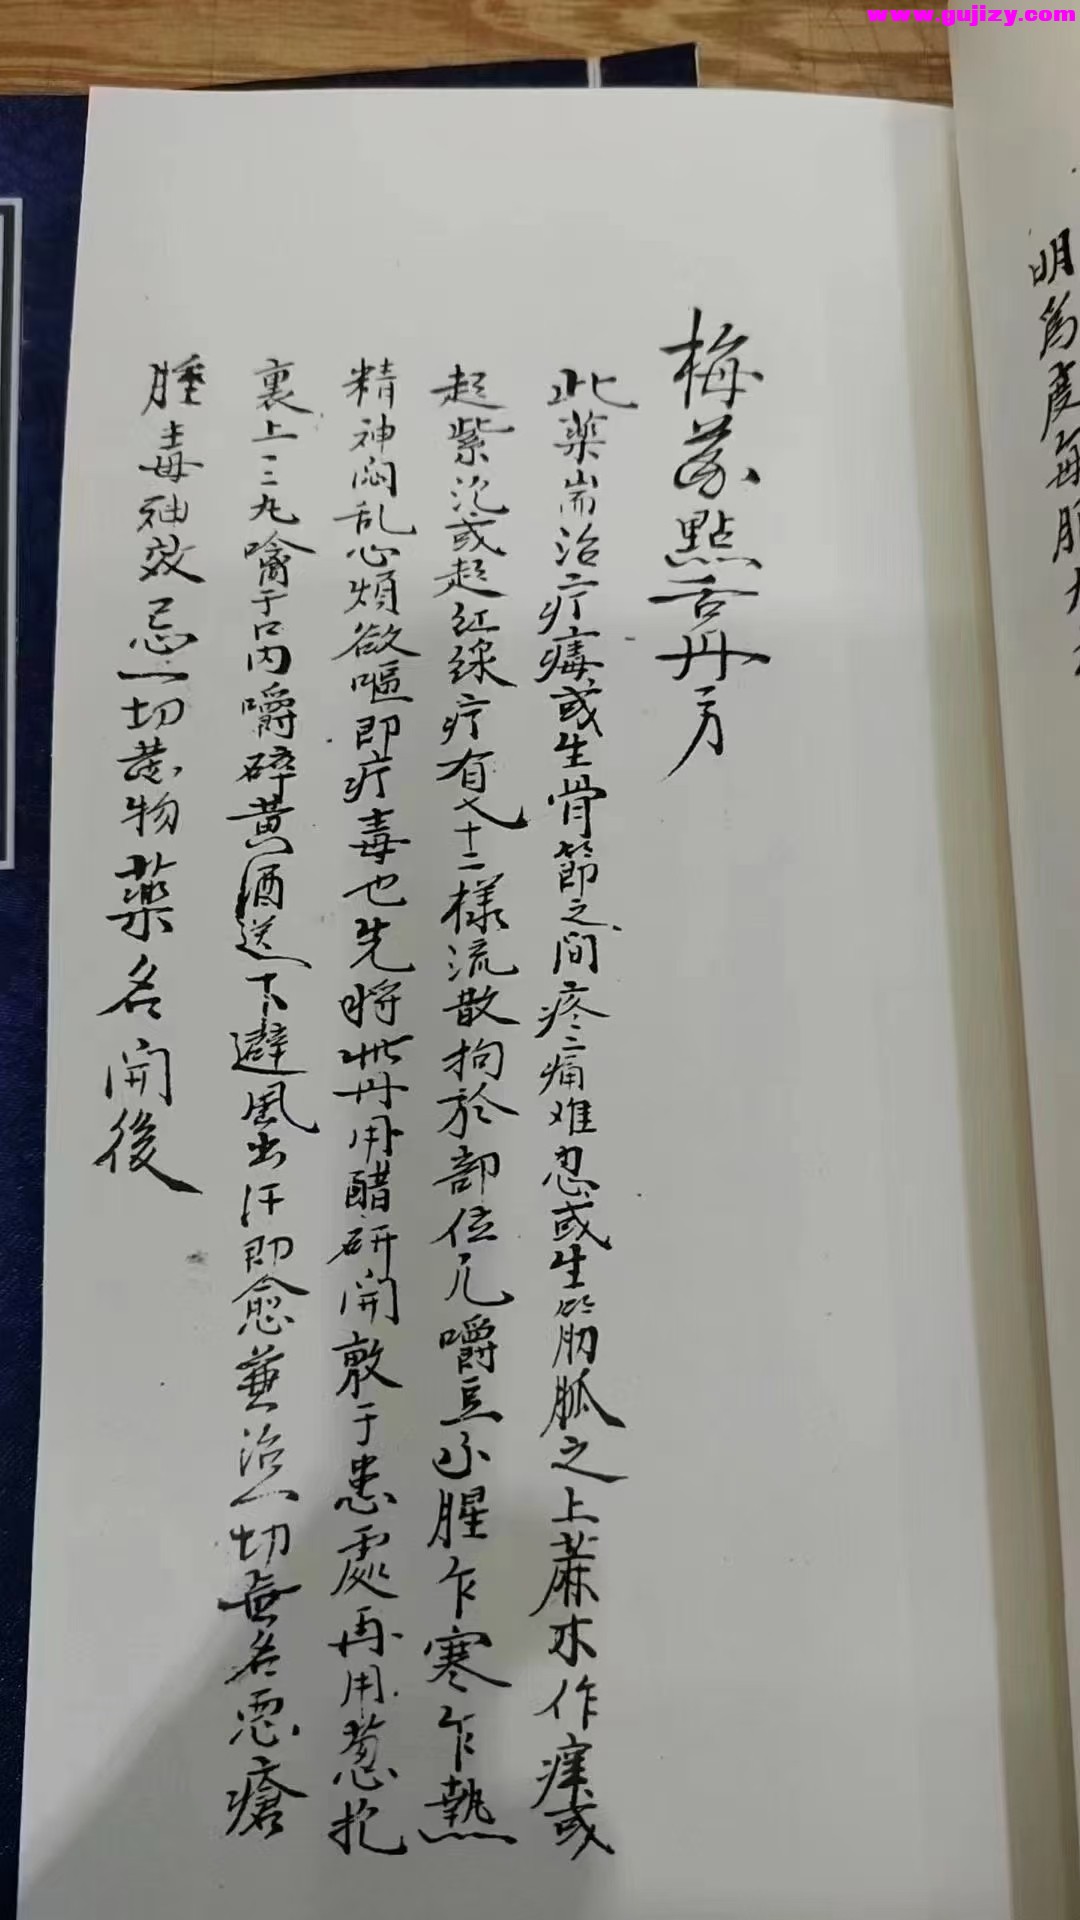 www.gujizy.com
明為度每服
梅蕊點舌丹方
此薬耑治疔瘺或生骨節之间疼痛难忍或生筋胍之上蔴木作痒或
起紫泡或起红線疔有七十二樣流散拘於部位凡嚼豆不腥乍寒乍熱
精神闷乱心煩欲嘔即疔毒也先將此丹用醋研開敷于患處再用葱抱
裹上三九噙于口内嚼碎黄酒送下避風出汗即愈兼治一切無名恶瘡
腫毒神效忌一切葷物藥名開後